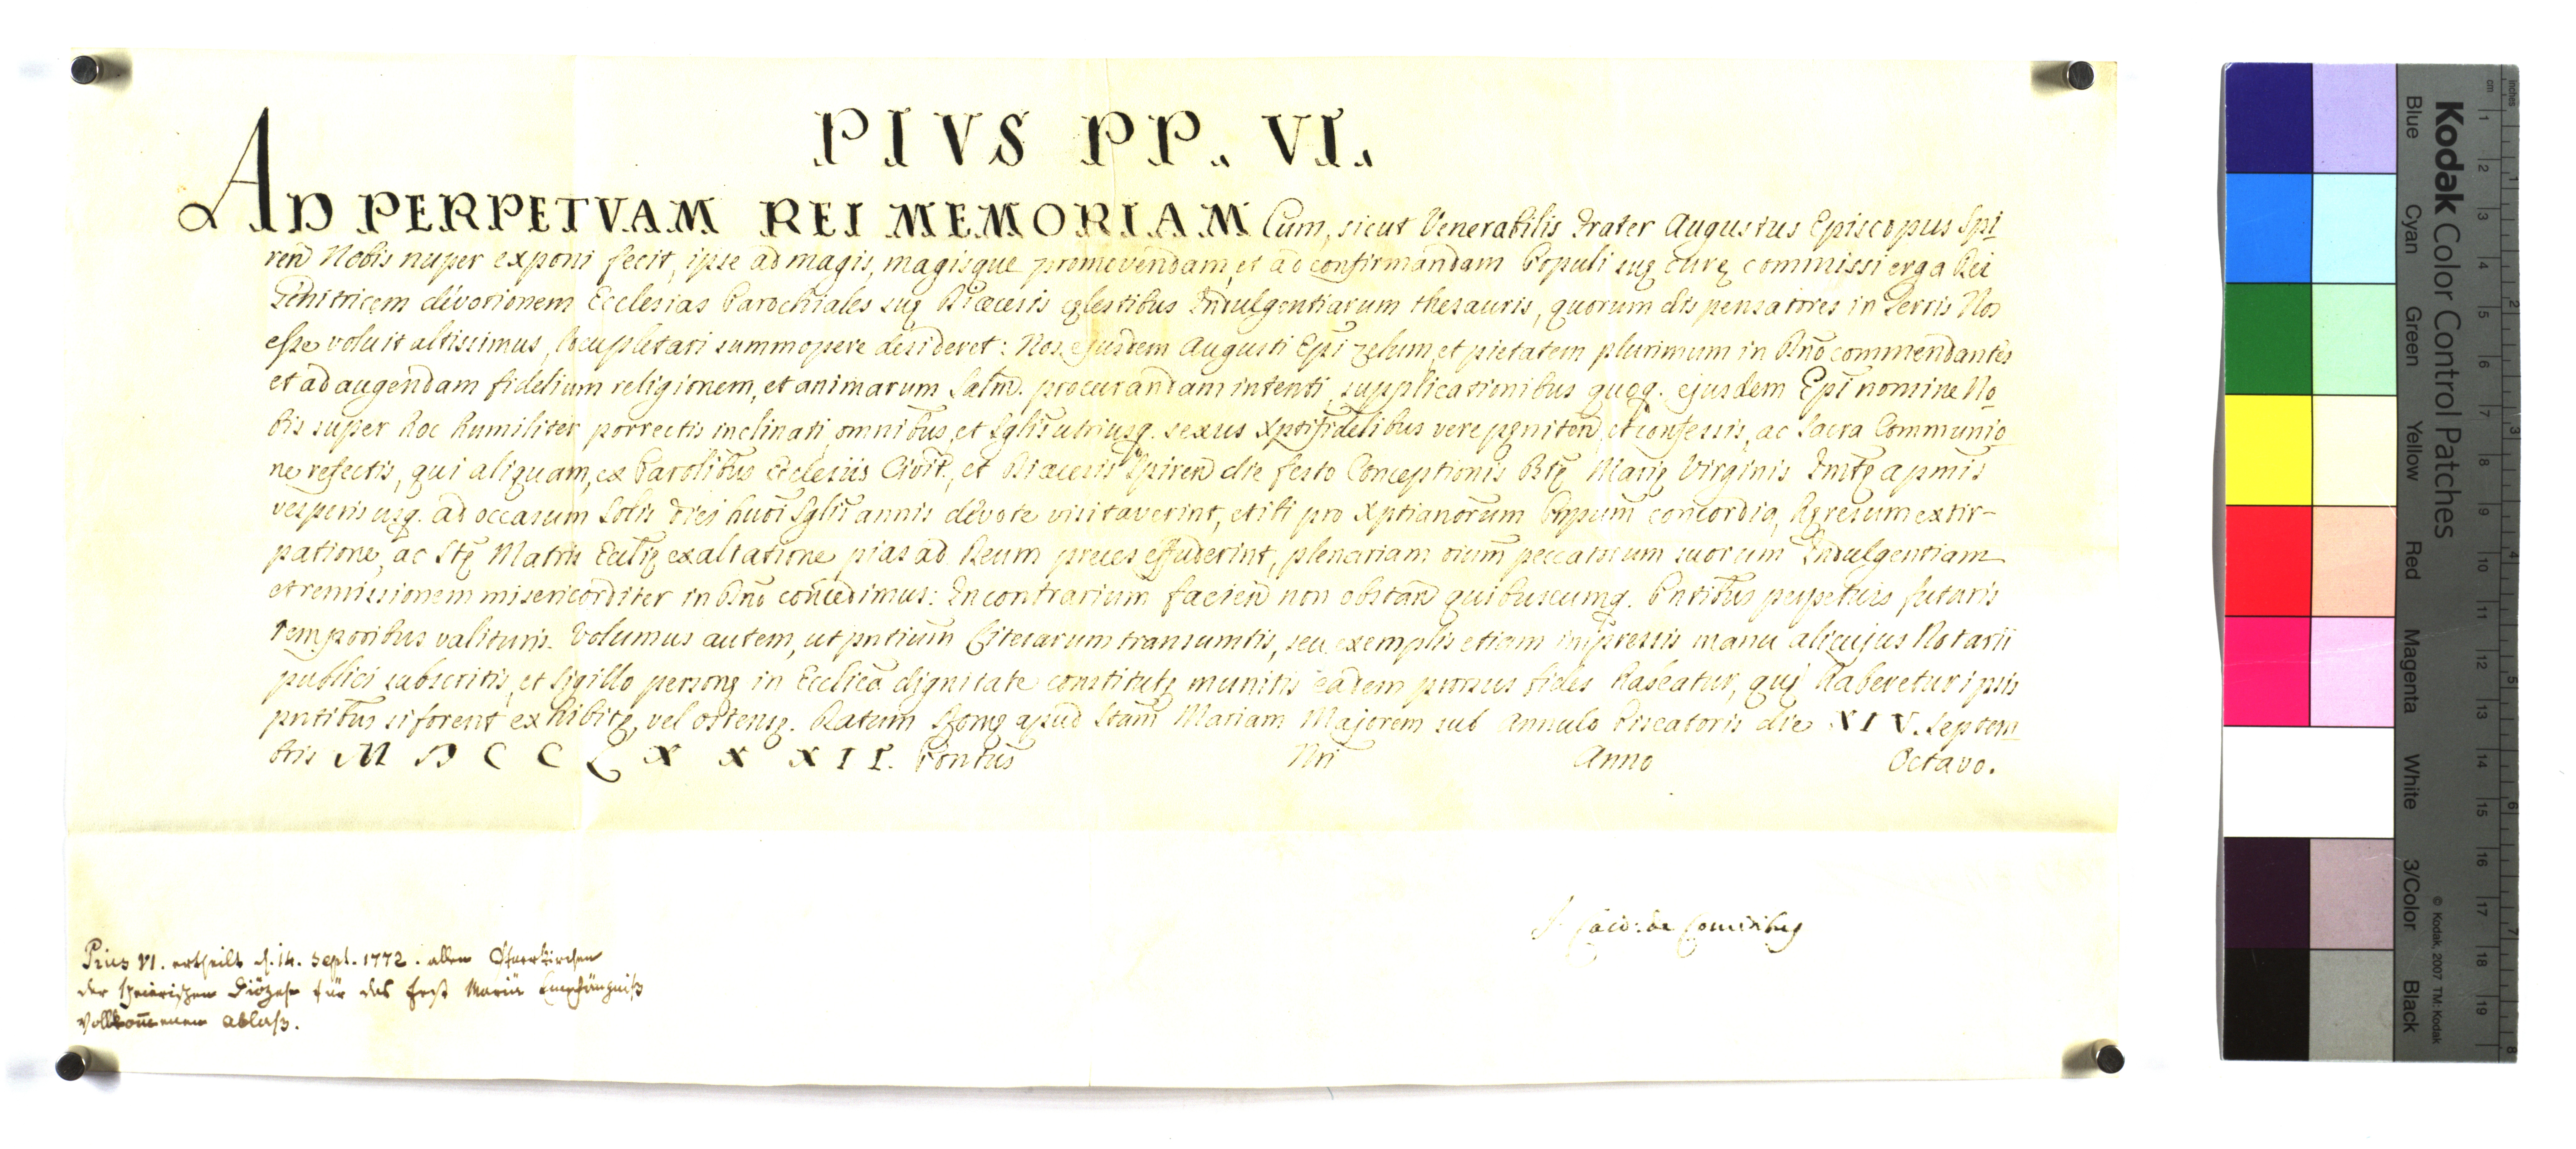 PIVS PP. VI.
AD PERPETVAM REI MEMORIAM Cum, sicut Venerabilis Frater Augustus Episcopus Spi
ren̄ Nobis nuper exponi fecit, ipse ad magis, magisque promovendam, et ad confirmandam Populi suę curę commissi erga Dei
Genitricem devotionem Ecclesias Parochiales suę Diœcesis cęlestibus Indulgentiarum thesauris, quorum dispensatores in Terris Nos
esse voluit altissimus, locupletari summopere desideret: Nos ejusdem Augusti Epi̅ zelum, et pietatem plurimum in Dn̄o commendantes
et ad augendam fidelium religionem, et animarum Salut̄. procurandam intenti, supplicationibus quoq. ejusdem Epi̅ nomine No
bis super hoc humiliter porrectis inclinati, omnibus, et sglis̄ utriusq. sexus Xpti̅fidelibus vere pęniten̄, et confessis, ac Sacra Communio
ne refectis, qui aliquam, ex Paro̅libus Ecclesiis Civit., et Diœcesis Spiren̄ die festo Conceptionis Bt̄ę Marię Virginis Im̄tę a pmis̄
vesperis usq. ad occasum Solis diei huōi sglis̄ annis devote visitaverint, et ibi pro Xptianorum Pnpum̄ concordia, hęresum extir-
patione, ac Stę Matris Eccl̄ię exaltatione pias ad Deum preces effuderint, plenariam oium̄ peccatorum suorum Indulgentiam
et remissionem misericorditer in Dn̄o concedimus: In contrarium facien̄ non obstan̄ quibuscumq. Pn̄tibus perpetuis futuris
Temporibus valituris. Volumus autem, ut pn̄tium Literarum transumtis, seu exemplis etiam impressis manu alicujus Notarii
publici subscritis, et sigillo personę in Eccl̄ica dignitate constitutę munitis eadem prorsus fides habeatur, quę haberetur ipsis
pn̄tibus si forent exhibitę, vel ostensę. Datum Romę apud Stam̄ Mariam Majorem sub Annulo Piscatoris die XIV. Septem
bris MDCCLXXXII. Pontus̄ Nri̅ Anno Octavo.
de Comitibus
Pius VI. ertheilt d. 14. Sept. 1772. allen Pfarrkirchen
der speierischen Diözese für das Fest Mariä Empfängniß
vollkom̄enen ablaß.
Kodak Color Control Patches
Blue Cyan Green Yellow Red Magenta White 3/Color Black
© Kodak, 2007 TM: Kodak
cm 1 2 3 4 5 6 7 8 9 10 11 12 13 14 15 16 17 18 19
inches 1 2 3 4 5 6 7 8